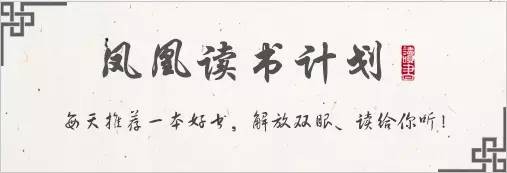 凤凰读书计划
读书
每天推荐一本好书，解放双眼、读给你听！